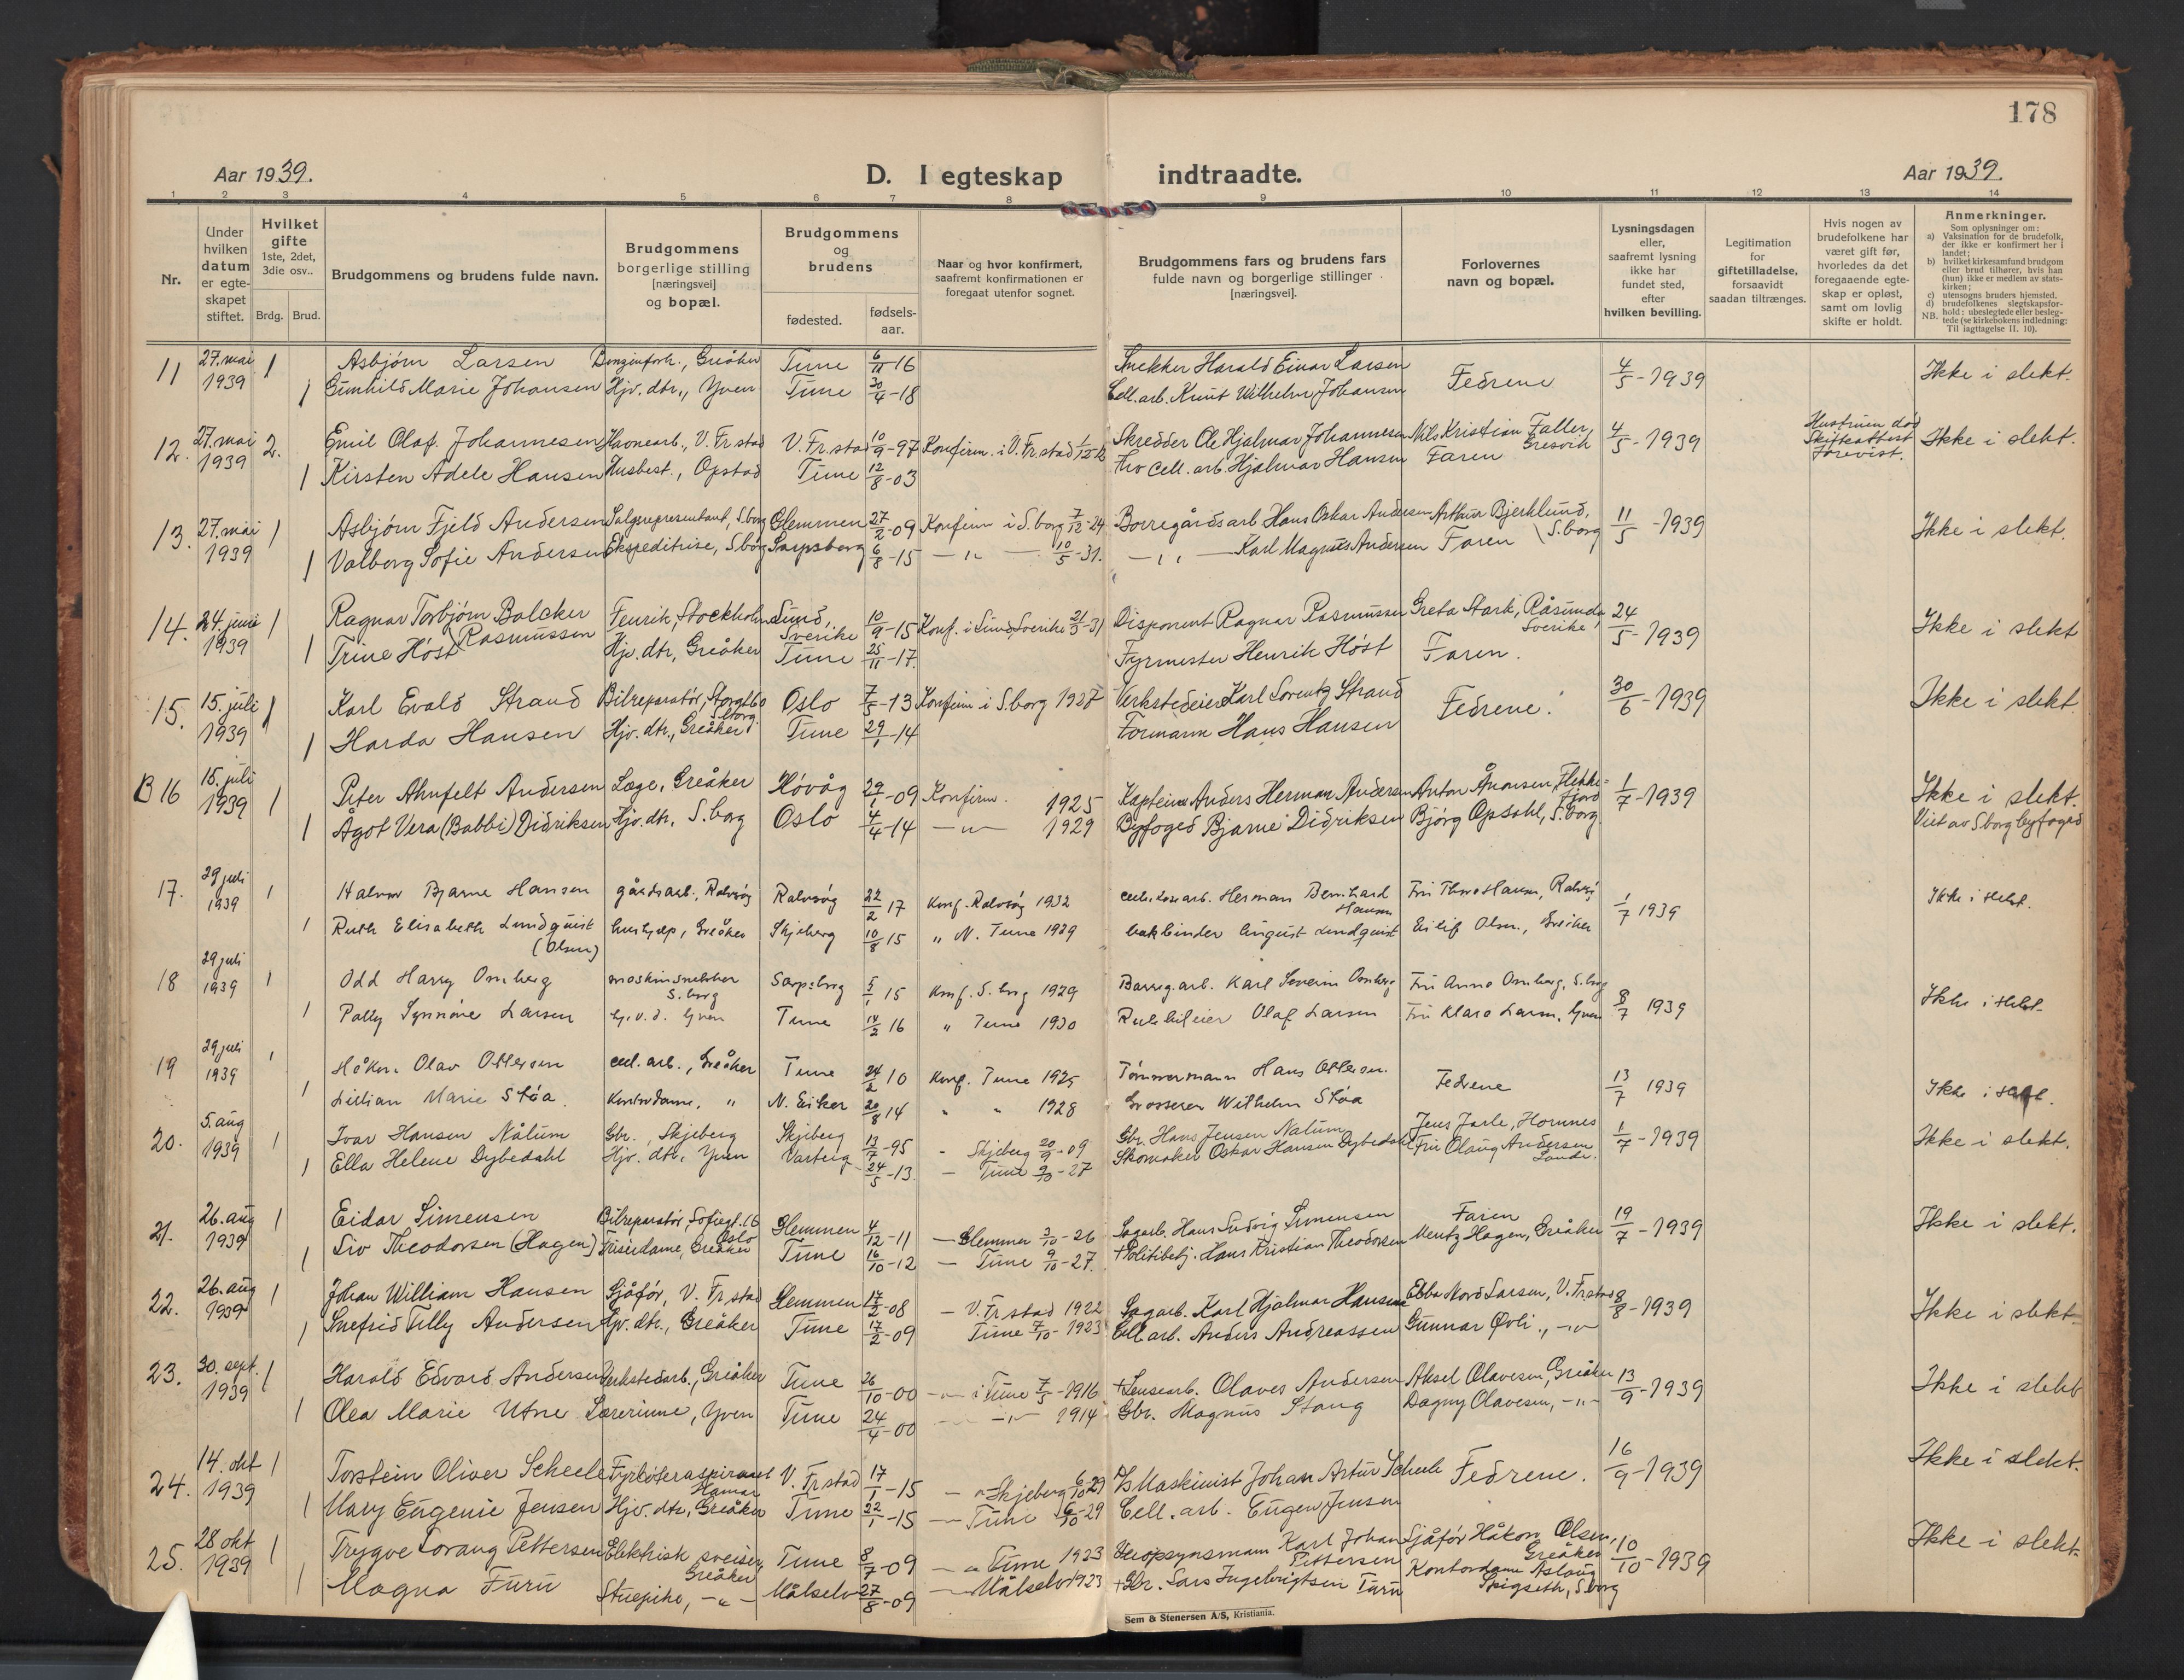 178
Aar 1939.
D. I egteskap indtraadte.
Aar 1939.
1 2 3 4 5 6 7 8 9 10 11 12 13 14
Nr.
Under hvilken datum er egteskapet stiftet.
Hvilket gifte 1ste, 2det, 3die osv..
Brdg. Brud.
Brudgommens og brudens fulde navn.
Brudgommens borgerlige stilling [næringsvei] og bopæl.
Brudgommens og brudens
fødested.
fødsels-aar.
Naar og hvor konfirmert, saafremt konfirmationen er foregaat utenfor sognet.
Brudgommens fars og brudens fars fulde navn og borgerlige stillinger [næringsvei].
Forlovernes navn og bopæl.
Lysningsdagen eller, saafremt lysning ikke har fundet sted, efter hvilken bevilling.
Legitimation for giftetilladelse, forsaavidt saadan tiltrænges.
Hvis nogen av brudefolkene har været gift før, hvorledes da det foregaaende egteskap er opløst, samt om lovlig skifte er holdt.
Anmerkninger.
Som oplysninger om:
a) Vaksination for de brudefolk, der ikke er konfirmert her i landet;
b) hvilket kirkesamfund brudgom eller brud tilhører, hvis han (hun) ikke er medlem av statskirken;
c) utensogns bruders hjemsted.
d) brudefolkenes slegtskapsforhold: ubeslegtede eller beslegtede (se kirkebokens indledning: Til iagttagelse II. 10).
NB.
11 27. mai 1939 1 Asbjørn Larsen Benzinforh., Greåker Tune 6/11-16 Snekker Harald Einar Larsen Fedrene 4/5-1939 Ikke i slekt.
1 Gunhild Marie Johansen Hjv. dtr., Yven Tune 30/4-18 Cell. arb. Knut Wilhelm Johansen
12. 27. mai 1939 2. Emil Olaf Johannesen Havnearb., V. Fr.stad V. Fr.stad 10/9-97 Konfirm. i V. Fr.stad Skredder Ole Hjalmar Johannesen Nils Kristian Faller, Gresvik 4/5-1939 Hustruen død Skifteattest forevist. Ikke i slekt.
1 Kirsten Adele Hansen Husbest., Opstad Tune 12/8-03 Cell. arb. Hjalmar Hansen Faren
13. 27. mai 1939 1 Asbjørn Fjeld Andersen Salgsrepresentant, S.borg Glemmen 27/2-09 Konfirm i S.borg 7/12-24 Borregårds arb Hans Oskar Andersen Arthur Bjerklund, S.borg 11/5-1939 Ikke i slekt.
1 Valborg Sofie Andersen Ekspeditrise, S.borg Sarpsborg 6/8-15 —"— 10/5-31. —"— Karl Magnus Andersen Faren
14. 24. juni 1939 1 Ragnar Torbjørn Balcker Rasmussen Fenrik, Stockholm Lund, Sverike 10/9-15 Konf. i Lund, Sverike 21/3-31 Disponent Ragnar Rasmussen Greta Stark, Råsunda, Sverike 24/5-1939 Ikke i slekt
1 Trine Høst Hjv. dtr, Greåker Tune 25/11-17. Fyrmester Henrik Høst Faren.
15. 15. juli 1939 1 Karl Evald Strand Bilreparatør, Storgt. 60 S.borg. Oslo 7/5-13 Konfirm i S.borg 1927 Verkstedeier Karl Lorentz Strand Fedrene. 30/6-1939 Ikke i slekt.
1 Harda Hansen Hjv. dtr., Greåker Tune 29/1-14 Formann Hans Hansen
B 16 15. juli 1939 1 Peter Ahnfelt Andersen Læge, Greåker Høvåg 29/1-09 Konfirm. 1925 Kaptein Anders Herman Andersen Anton Ånonsen, Flekkefjord 1/7-1939 Ikke i slekt.
1 Ågot Vera (Babbi) Didriksen Hjv. dtr, S.borg Oslo 4/4-14 —"— 1929 Byfoged Bjarne Didriksen Bjørg Opsahl, S.borg. Viet av S.borg byfoged
17. 29 juli 1939 1 Halvor Bjarne Hansen gårdsarb., Rolvsøy Rolvsøy 22/2 17 Konf. Rolvsøy 1932 cellulosearb. Herman Bernhard Hansen Fru Thora Hansen, Rolvsøy 1/7 1939 Ikke i slekt.
1 Ruth Elisabeth Lundquist (Olsen) hushjelp, Greåker Skjeberg 10/8 15 " N. Tune 1929 bokbinder August Lundquist Eilif Olsen, Greåker
18 29 juli 1939 1 Odd Harry Omberg maskinsnekker S.borg Sarpsborg 5/1 15 Konf. S.borg 1929 Borreg. arb. Karl Severin Omberg Fru Anna Omberg, S.borg 8/7 1939 Ikke i slekt.
1 Polly Synnøve Larsen hj. v. d. Yven Tune 14/2 16 " Tune 1930 Rutebileier Olaf Larsen Fru Klara Larsen, Yven
19 29 juli 1939 1 Håkon Olav Ottersen cell. arb., Greåker Tune 24/2 10 Konf. Tune 1925 Tømmermann Hans Ottersen Fedrene 13/7 1939 Ikke i slekt.
1 Lillian Marie Støa Kontordame, " N. Eiker 20/8 14 " " 1928 Grosserer Wilhelm Støa
20. 5. aug 1939 1 Ivar Hansen Nålum Gbr., Skjeberg Skjeberg 13/7-95 - Skjeberg 20/9-09 Gbr. Hans Jensen Nalum Jens Jarle, Hornnes 1/7-1939 Ikke i slekt.
1 Ella Helene Dybedahl Hjv. dtr, Yven Varteig 24/5-13 - Tune 9/10-27 Skomaker Oskar Hansen Dybedahl Fru Olaug Andersen Sande.
21. 26. aug 1939 1 Eidar Simensen Bilreparatør, Sofiegt. 16 Oslo Glemmen 4/12-11 - Glemmen 3/10-26 Sagarb. Hans Ludvig Simensen Faren 19/7-1939 Ikke i slekt.
1 Siv Theodorsen (Hagen) Friserdame, Greåker Tune 16/10-12 - Tune 9/10-27. +Politibetj. Hans Kristian Theodorsen Mentz Hagen, Greåker
22. 26. aug 1939 1 Johan William Hansen Sjåfør, V. Fr.stad Glemmen 17/2-08 - V. Fr.stad 1922 Sagarb. Karl Hjalmar Hansen Ebba Nord Larsen, V. Fr.stad 8/8-1939 Ikke i slekt.
1 Snefrid Tilly Andersen Hjv. dtr., Greåker Tune 17/2-09 Tune 7/10-1923 Cell. arb. Anders Andreassen Gunnar Øvli, —"—
23. 30. sept. 1939 1 Harald Edvard Andersen Verkstedarb., Greåker Tune 26/10-00 —"— i Tune 7/5-1916 +Lensearb. Olaves Andersen Aksel Olavesen, Greåker 13/9-1939 Ikke i slekt
1 Olea Marie Utne Lærerinne, Yven Tune 24/4-00 —"— —"— 1914 Gbr. Magnus Stang Dagny Olavesen, —"—
24. 14. okt 1939 1 Torstein Oliver Scheele Fyrbøteraspirant Hamar V. Fr.stad 17/1-15 —"— Skjeberg 6/10-29 Maskinist Johan Artur Scheele Fedrene. 16/9-1939 Ikke i slekt.
1 Mary Eugenie Jensen Hjv. dtr, Greåker Tune 22/1-15 — Tune 6/10-29 Cell. arb. Eugen Jensen
25. 28 okt 1939 1 Trygve Lorang Pettersen Elektrisk sveiser, Greåker Tune 8/7-09 —"— Tune 1923 Karl Johan Pettersen Sjåfør Håkon Olsen, Greåker 10/10-1939 Ikke i slekt.
1 Magna Furu Stuepike, —"— Målselv 27/8-09 — Målselv 1923 +Gbr. Lars Ingebrigtsen Furu Kontordame Aslaug Spigseth, S.borg
Sem & Stenersen A/S, Kristiania.